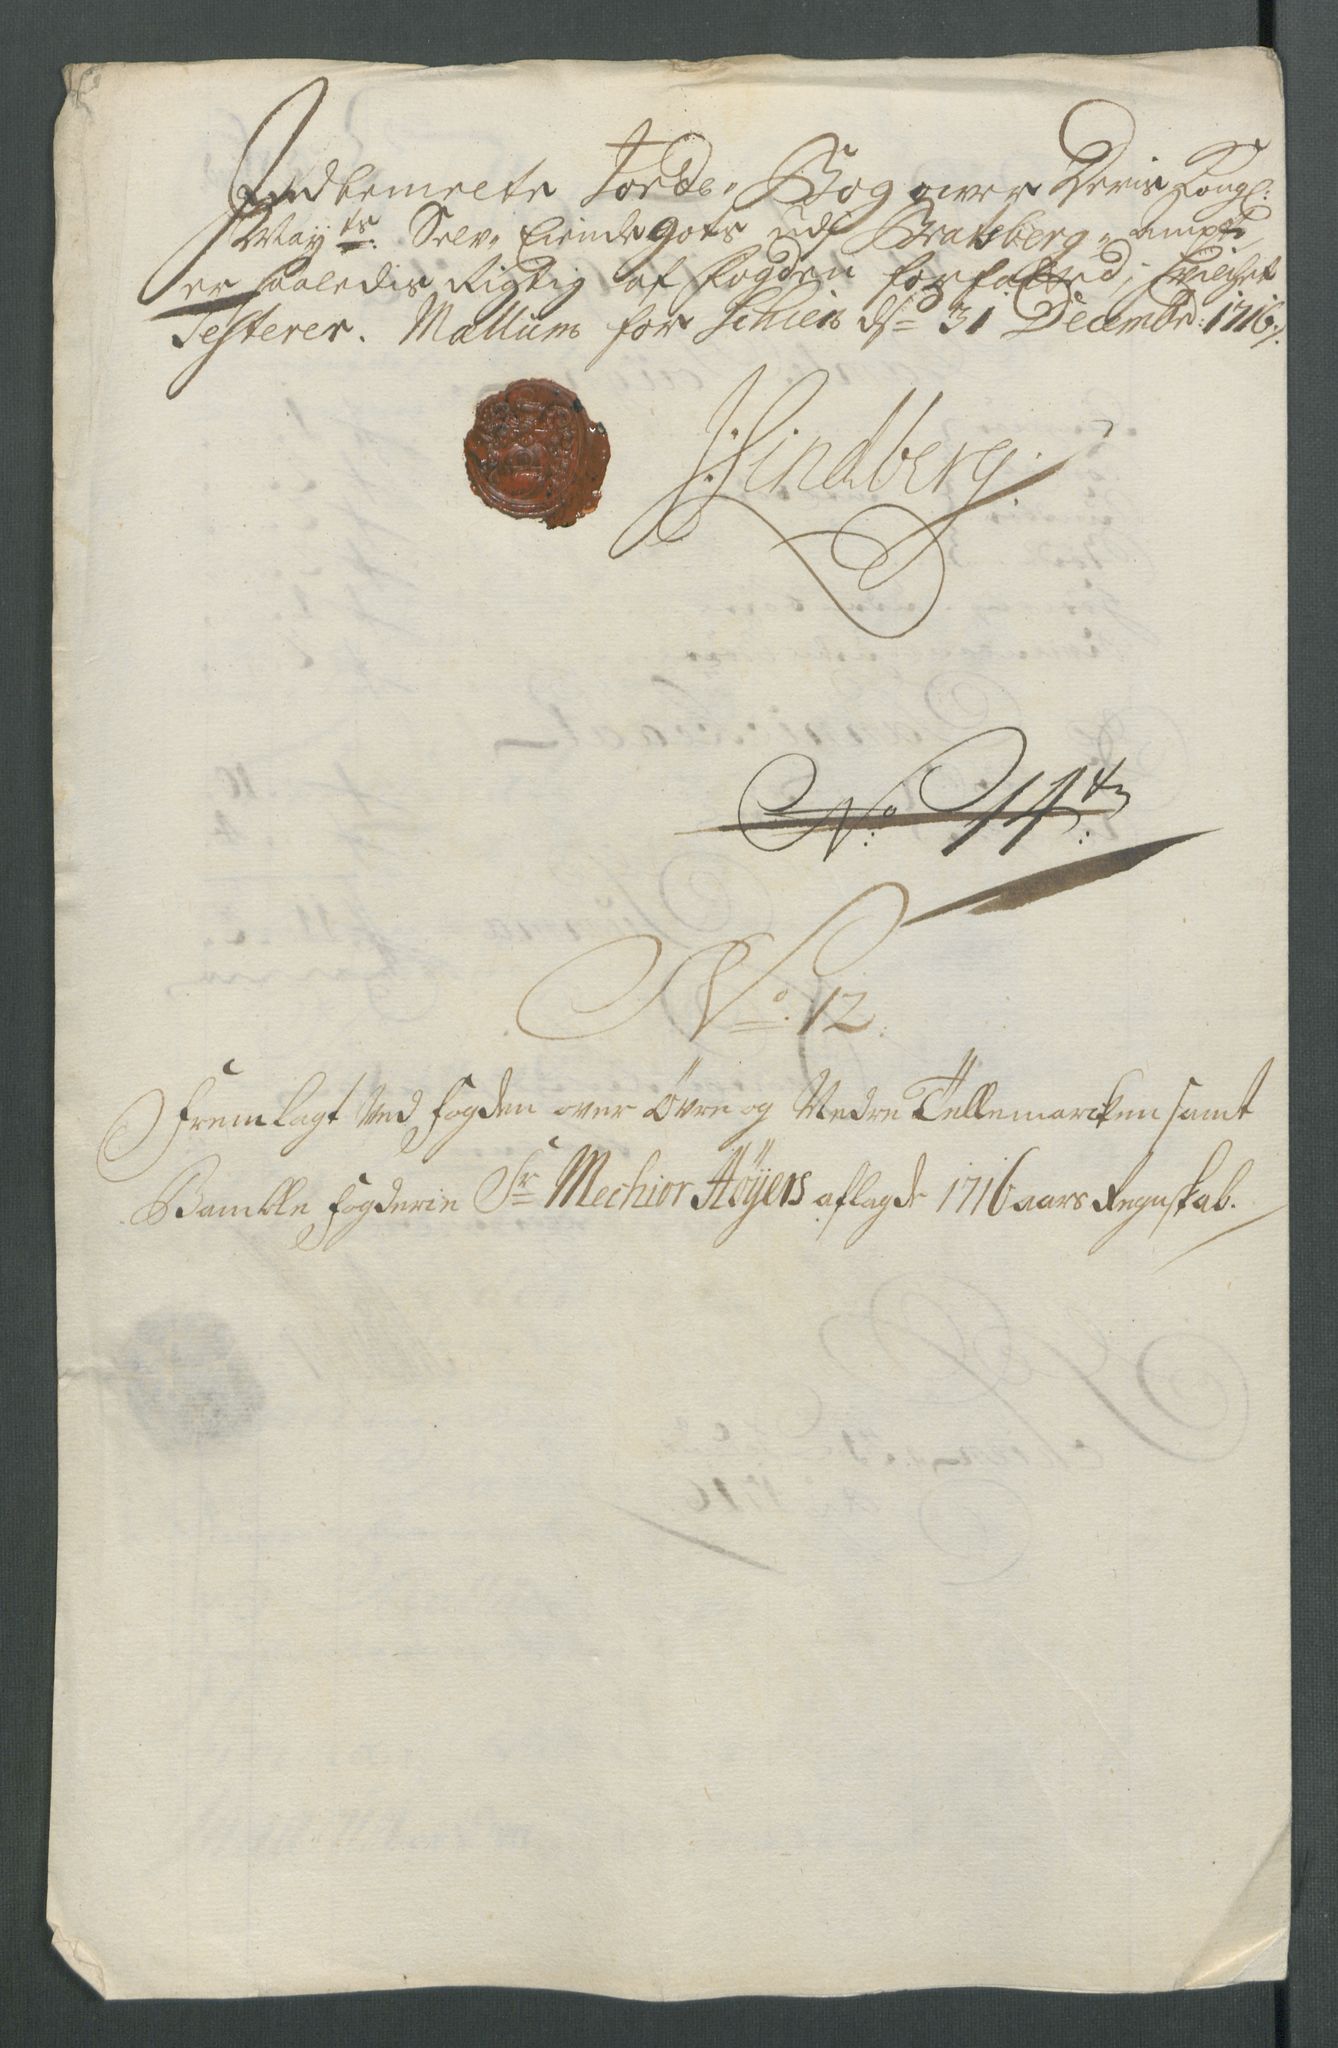 Indbemelte Jorde-Bog over Deris Kongl:
May:ts Selv-Eiendegots udj Bratsberg-ampt
er saaledis Rigtig af Fogden forfatted, hvilchet
Testerer. Mællum for Schien ds 31 Decembr: 1716/.
J: Lindberg.
No: 14tn:
No. 12.
Fremlagt Ved Fogden over Øvre og Nedre Tellemarcken samt
Bamble fogderie Sr Mechior Høyers aflagde 1716 aars Regnskab.